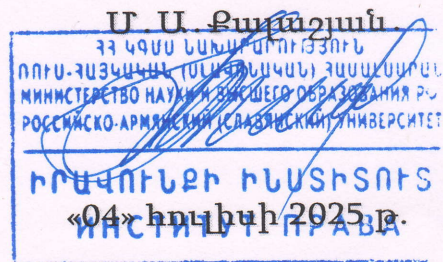 Մ. Ա. Քալաշյան.
ՀՀ ԿԳՄՍ ՆԱԽԱՐԱՐՈՒԹՅՈՒՆ
ՌՈՒՍ-ՀԱՅԿԱԿԱՆ (ՍԼԱՎՈՆԱԿԱՆ) ՀԱՄԱԼՍԱՐԱՆ
МИНИСТЕРСТВО НАУКИ И ВЫСШЕГО ОБРАЗОВАНИЯ РФ
РОССИЙСКО-АРМЯНСКИЙ (СЛАВЯНСКИЙ) УНИВЕРСИТЕТ
ԻՐԱՎՈՒՆՔԻ ԻՆՍՏԻՏՈՒՏ
«04» հուլիսի 2025 թ.
ИНСТИТУТ ПРАВА